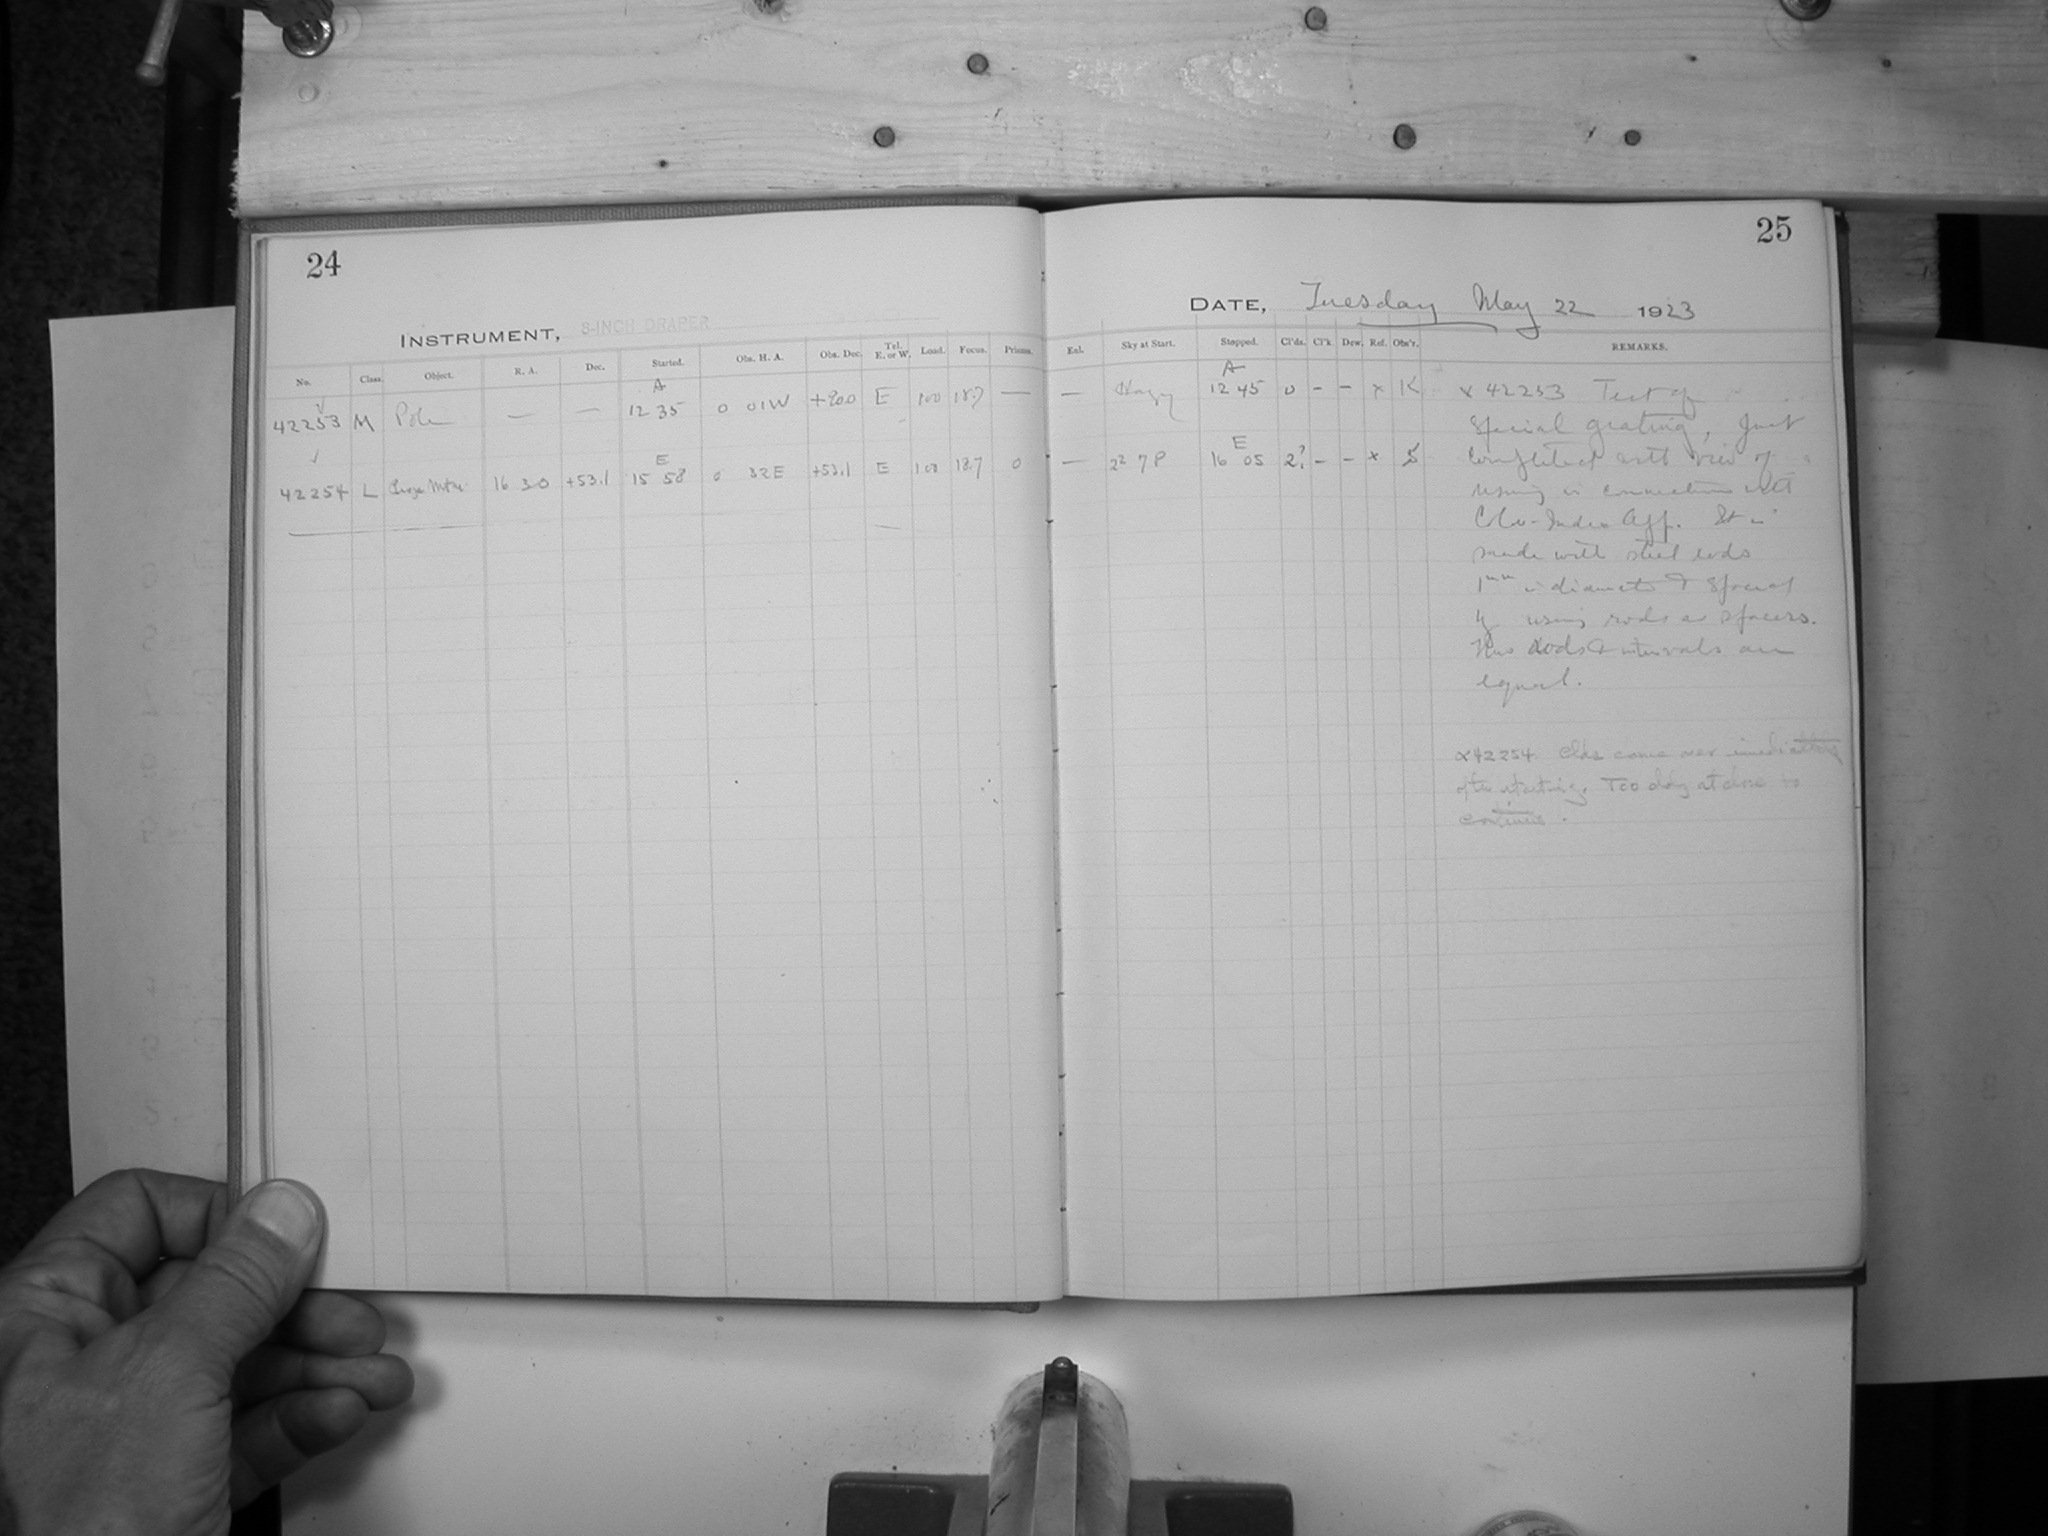 24
INSTRUMENT, 8-INCH DRAPER
No. Class. Object. R. A. Dec. Started. Obs. H. A. Obs. Dec. Tel. E. or W. Load. Focus. Prisms.
42253 M Pole — — A 12 35 0 01W +90.0 E 100 18.7 —
42254 L 16 30 +53.1 E 15 58 0 32E +53.1 E 100 18.7 0
25
DATE, Tuesday May 22 1923
Enl. Sky at Start. Stopped. Cl'ds. Cl'k Dew. Ref. Obs'r. REMARKS.
— Hazy A 12 45 0 - - x K
— 22 7P E 16 05 2? - - x S
x 42253 Test of
special grating, just
completed with view of
using in connection with
Color-Index App. It is
made with steel rods
1mm in diameter & spaced
by using rods as spacers.
Thus rods & intervals are
equal.
x42254. Clds came over immediately
after starting. Too cldy at close to
continue.